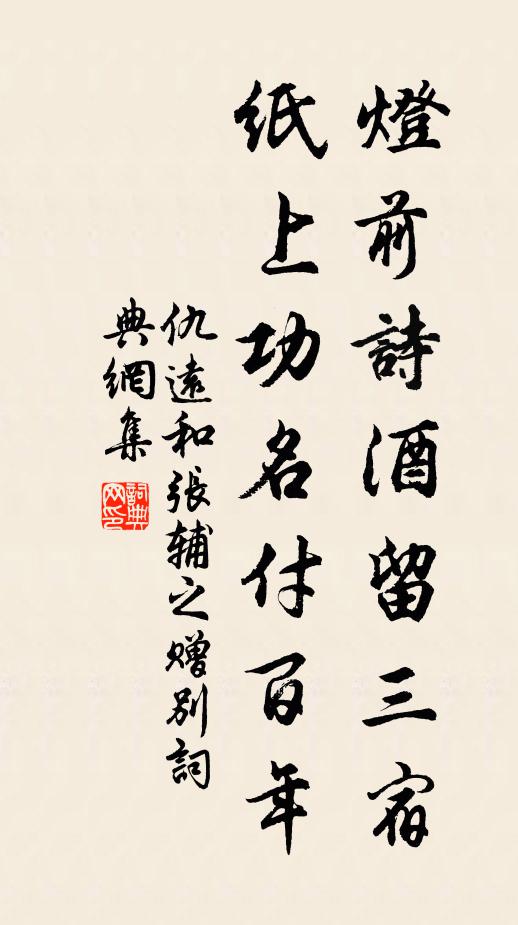 燈前詩酒留三宿
紙上功名付百年
仇遠和張輔之贈別詞
典網集
詞典网印